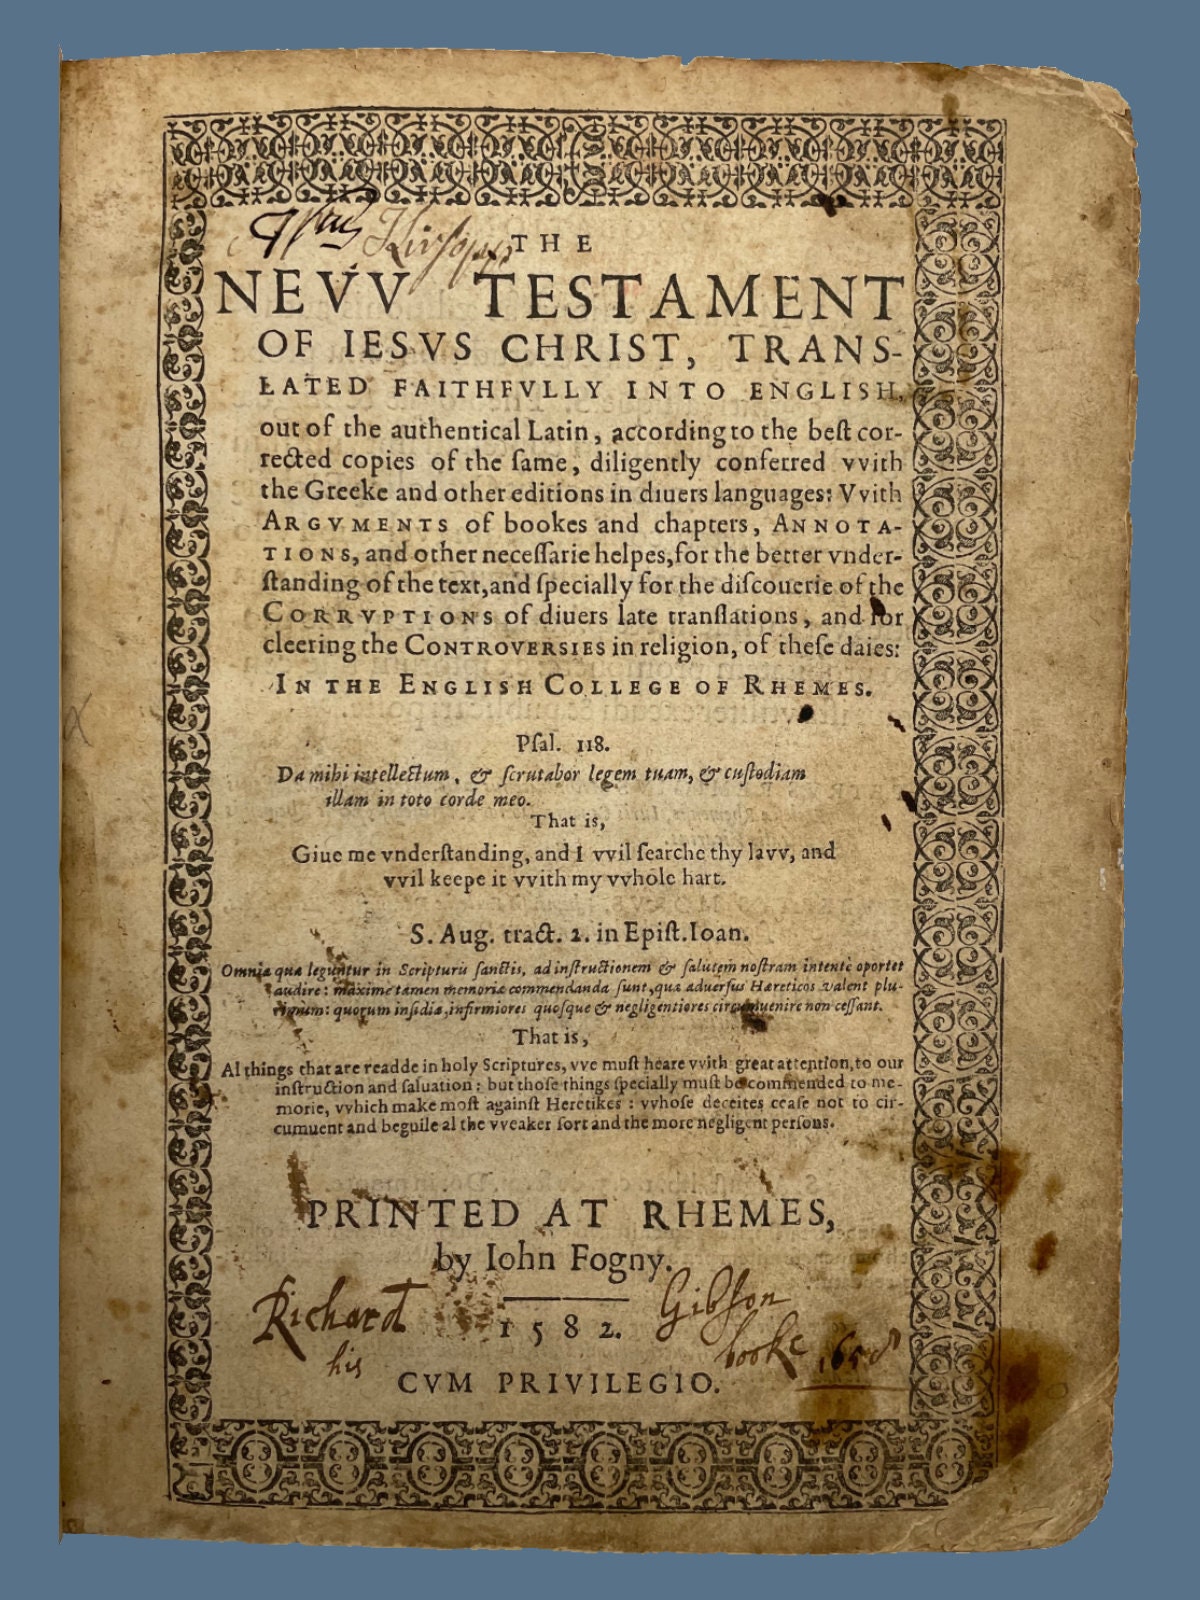 THE
NEVV TESTAMENT
OF IESVS CHRIST, TRANS-
LATED FAITHFVLLY INTO ENGLISH,
out of the authentical Latin, according to the beſt cor-
rected copies of the ſame, diligently conferred vvith
the Greeke and other editions in diuers languages: Vvith
ARGVMENTS of bookes and chapters, ANNOTA-
TIONS, and other neceſſarie helpes, for the better vnder-
ſtanding of the text, and ſpecially for the diſcouerie of the
CORRVPTIONS of diuers late tranſlations, and for
cleering the CONTROVERSIES in religion, of theſe daies:
IN THE ENGLISH COLLEGE OF RHEMES.
Pſal. 118.
Da mihi intellectum, & ſcrutabor legem tuam, & cuſtodiam
illam in toto corde meo.
That is,
Giue me vnderſtanding, and I vvil ſearche thy lavv, and
vvil keepe it vvith my vvhole hart.
S. Aug. tract. 2. in Epiſt. Ioan.
Omnia quæ leguntur in Scripturis ſanctis, ad inſtructionem & ſalutem noſtram intentè oportet
audire: maximè tamen memoriæ commendanda ſunt, quæ aduerſus Hæreticos valent plu-
rimùm: quorum inſidiæ, infirmiores quoſque & negligentiores circumuenire non ceſſant.
That is,
Al things that are readde in holy Scriptures, vve muſt heare vvith great attention, to our
inſtruction and ſaluation: but thoſe things ſpecially muſt be commended to me-
morie, vvhich make moſt againſt Heretikes: vvhoſe deceites ceaſe not to cir-
cumuent and beguile al the vveaker ſort and the more negligent perſons.
PRINTED AT RHEMES,
by Iohn Fogny.
Richard 1582. Gibſon
his booke
CVM PRIVILEGIO.